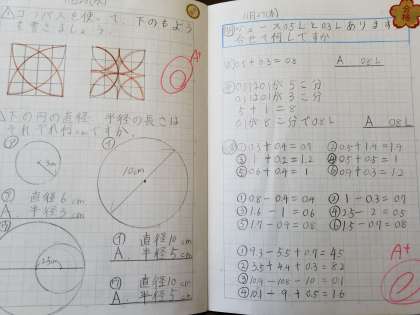 △コンパスを使って、下のもよう
を書きましょう。
A+
△下の円の直径 半径の長さは
それぞれ何cmですか。
㋐
3cm
㋑
10cm
直径6cm
A 半径3cm
㋑ 直径10cm
A 半径5cm
㋒ 直径10cm
A 半径5cm
ジュース0.5Lと0.3Lあります
合せて何Lですか
0.5+0.3=0.8
A 0.8L
0.1が5こ分
0.1が3こ分
5+1=8
0.1が8こ分で0.8L
A 0.8L
② 0.5+1.4=1.9
④ 0.5+0.5=1
⑤ 0.6+0.4=1
⑥ 0.9+0.3=1.2
① 0.8-0.4=0.4
② 1-0.3=0.7
③ 1.6-1=0.6
④ 2.5-2=0.5
⑤ 1.7-0.9=0.8
⑥ 1.5-0.7=0.8
① 9.3-5.5+0.7=4.5
② 3.5+4.4+0.3=8.2
③ 10.9-10.8-10=0.1
④ 10.1-9+0.5=1.6
A+